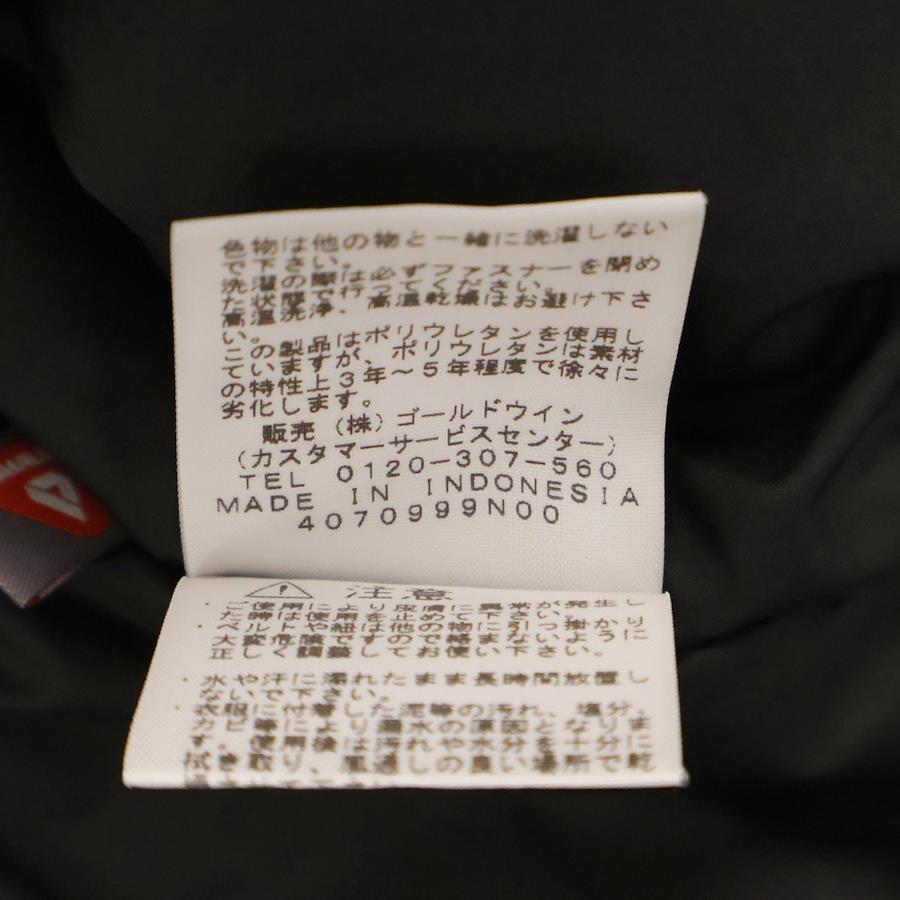 色物は他の物と一緒に洗濯しない
で下さい。
洗濯の際は必ずファスナーを閉め
た状態で行ってください。
高温洗浄、高温乾燥はお避け下さ
い。
この製品はポリウレタンを使用し
ていますが、ポリウレタンは素材
の特性上3年～5年程度で徐々に
劣化します。
販売(株)ゴールドウイン
(カスタマーサービスセンター)
TEL 0120-307-560
MADE IN INDONESIA
4070999N00
注意
ご使用により皮膚に異常が発生し
た時は使用を止めて下さい。
・ベルトや紐は他の物に引っ掛かり
大変危険ですので絡まないように
正しく調整してお使い下さい。
・水や汗に濡れたまま長時間放置し
ないで下さい。
・衣服に付着した泥等の汚れ、塩分、
カビ等により漏水の原因となりま
す。使用後は汚れや水分を十分に
拭き取り、風通しの良い場所で乾